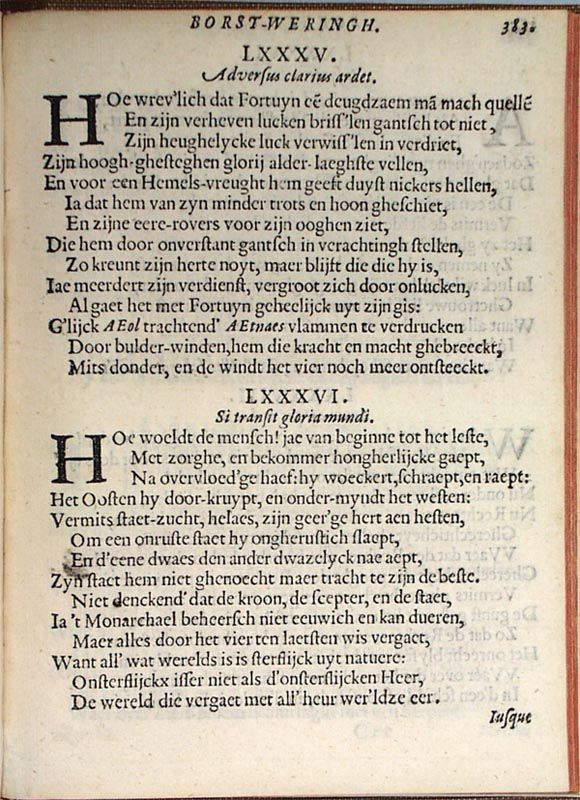 BORST-WERINGH. 383.
LXXXV.
Adversus clarius ardet.
HOe wrev'lich dat Fortuyn eẽ deugdzaem mã mach quellẽ
En zijn verheven lucken briſſ'len gantſch tot niet,
Zijn heughelycke luck verwiſſ'len in verdriet,
Zijn hoogh-gheſteghen glorij alder-laeghſte vellen,
En voor een Hemels-vreught hem geeft duyſt nickers hellen,
Ia dat hem van zyn minder trots en hoon gheſchiet,
En zijne eere-rovers voor zijn ooghen ziet,
Die hem door onverſtant gantſch in verachtingh ſtellen,
Zo kreunt zijn herte noyt, maer blijft die die hy is,
Iae meerdert zijn verdienſt, vergroot zich door onlucken,
Al gaet het met Fortuyn geheelijck uyt zijn gis:
G'lijck AEol trachtend' AEtnaes vlammen te verdrucken
Door bulder-winden, hem die kracht en macht ghebreeckt,
Mits donder, en de windt het vier noch meer ontſteeckt.
LXXXVI.
Si tranſit gloria mundi.
HOe woeldt de menſch! jae van beginne tot het leſte,
Met zorghe, en bekommer hongherlijcke gaept,
Na overvloed'ge haef: hy woeckert, ſchraept, en raept:
Het Ooſten hy door-kruypt, en onder-myndt het weſten:
Vermits ſtaet-zucht, helaes, zijn geer'ge hert aen heſten,
Om een onruſte ſtaet hy ongheruſtich ſlaept,
En d'eene dwaes den ander dwazelyck nae aept,
Zyn ſtaet hem niet ghenoecht maer tracht te zijn de beſte.
Niet denckend' dat de kroon, de ſcepter, en de ſtaet,
Ia 't Monarchael beheerſch niet eeuwich en kan dueren,
Maer alles door het vier ten laetſten wis vergaet,
Want all' wat werelds is is ſterflijck uyt natuere:
Onſterflijckx iſſer niet als d'onſterflijcken Heer,
De wereld die vergaet met all' heur wer'ldze eer.
Iuſque